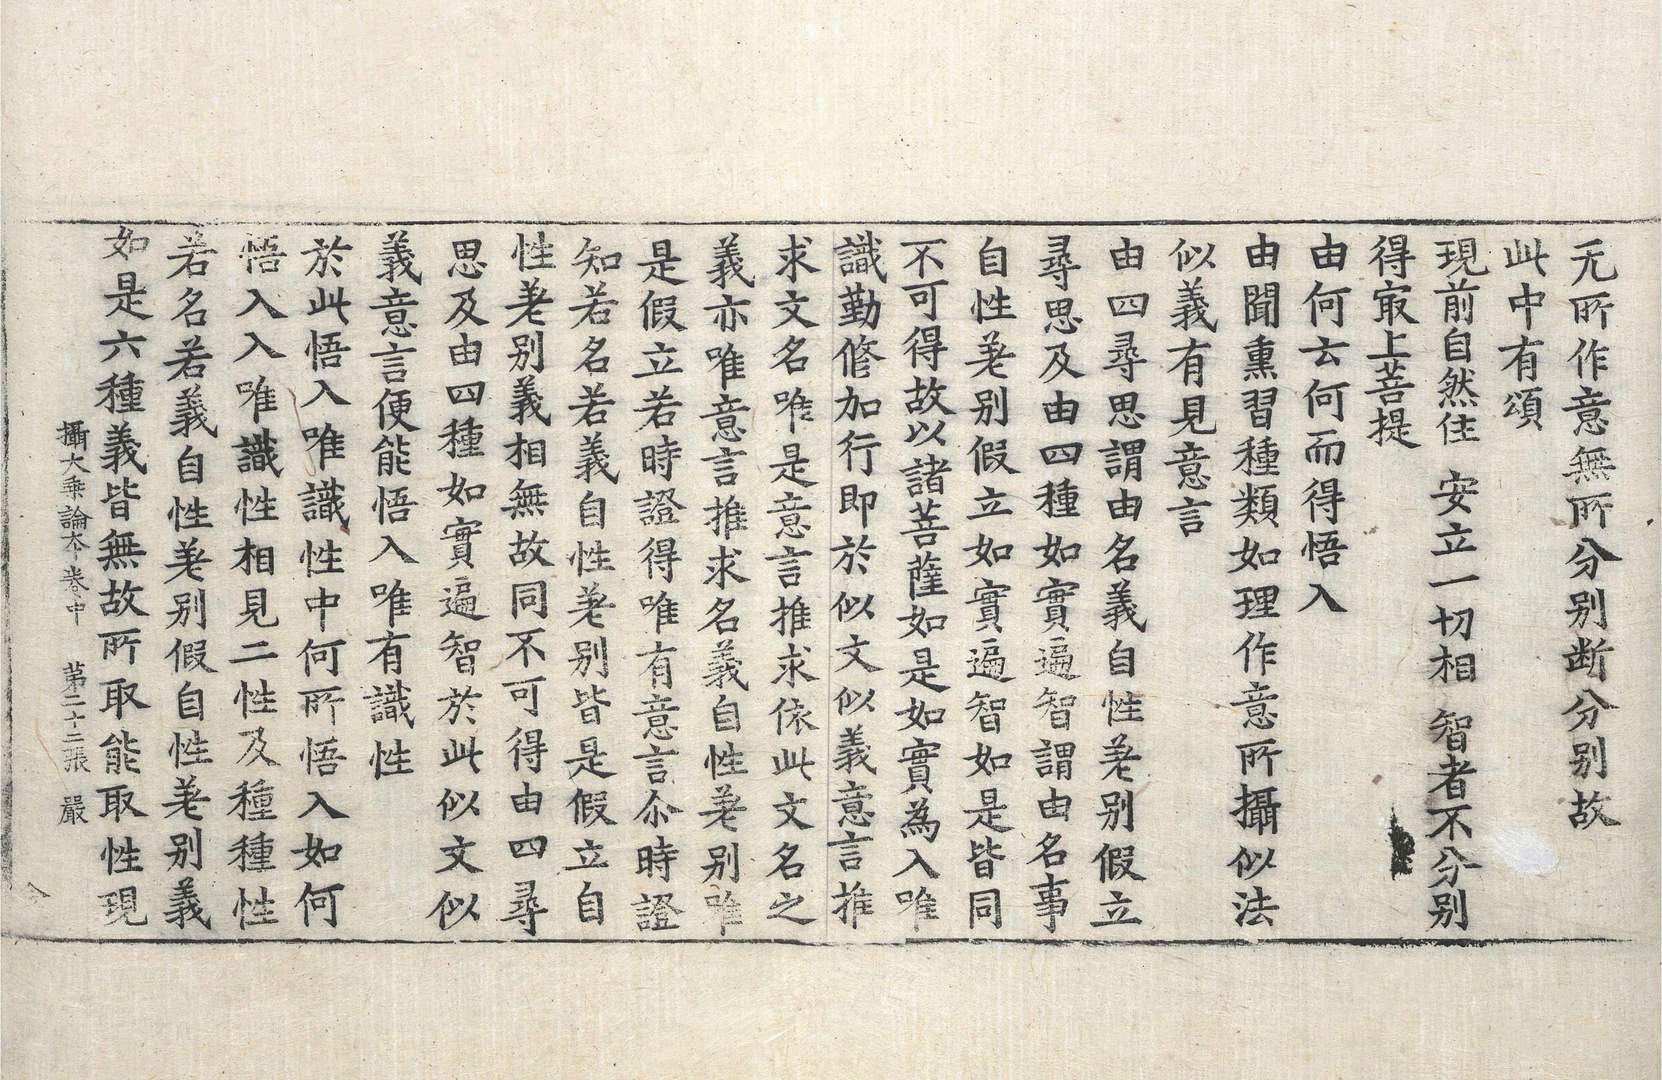 无所作意無所分别断分别故
此中有頌
現前自然住 安立一切相 智者不分别
得㝡上菩提
由何云何而得悟入
由聞熏習種類如理作意所攝似法
似義有見意言
由四尋思謂由名義自性差别假立
尋思及由四種如實遍智謂由名事
自性差别假立如實遍智如是皆同
不可得故以諸菩薩如是如實為入唯
識勤修加行即於似文似義意言推
求文名唯是意言推求依此文名之
義亦唯意言推求名義自性差别唯
是假立若時證得唯有意言尒時證
知若名若義自性差别皆是假立自
性差别義相無故同不可得由四尋
思及由四種如實遍智於此似文似
義意言便能悟入唯有識性
於此悟入唯識性中何所悟入如何
悟入入唯識性相見二性及種種性
若名若義自性差别假自性差别義
如是六種義皆無故所取能取性現
攝大乘論本卷中 第二十二張 嚴